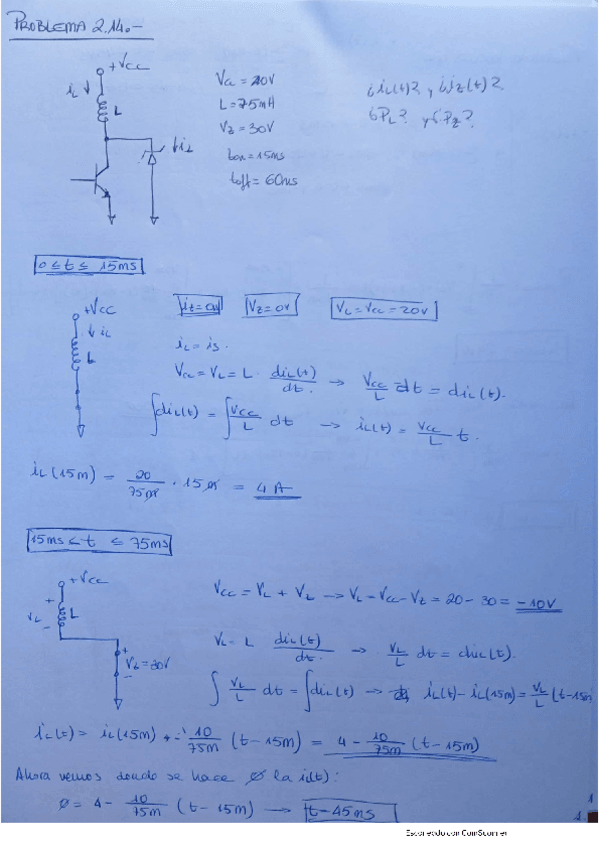 PROBLEMA 2.14.-
+Vcc
iL ↓
L
↓iz
Vcc = 20V
L = 75mH
Vz = 30V
ton = 15ms
toff = 60ms
¿iL(t)? y ¿iz(t)?
¿PL? y ¿Pz?
0 ≤ t ≤ 15ms
+Vcc
↓ iL
L
iz = 0A
Vz = 0V
VL = Vcc = 20V
iL = is.
Vcc = VL = L · diL(t)/dt. → Vcc/L dt = diL(t).
∫diL(t) = ∫Vcc/L dt → iL(t) = Vcc/L t.
iL(15m) = 20/75m · 15m = 4A
15ms < t ≤ 75ms
+Vcc
+
VL
-
L
+
Vz = 30V
-
Vcc = VL + Vz → VL = Vcc - Vz = 20 - 30 = -10V
VL = L diL(t)/dt. → VL/L dt = diL(t).
∫ VL/L dt = ∫diL(t) → iL(t) - iL(15m) = VL/L (t-15m)
iL(t) = iL(15m) + - 10/75m (t-15m) = 4 - 10/75m (t-15m)
Ahora vemos donde se hace Ø la i(t):
Ø = 4 - 10/75m (t-15m) → t = 45ms
1
1.
Escaneado con CamScanner